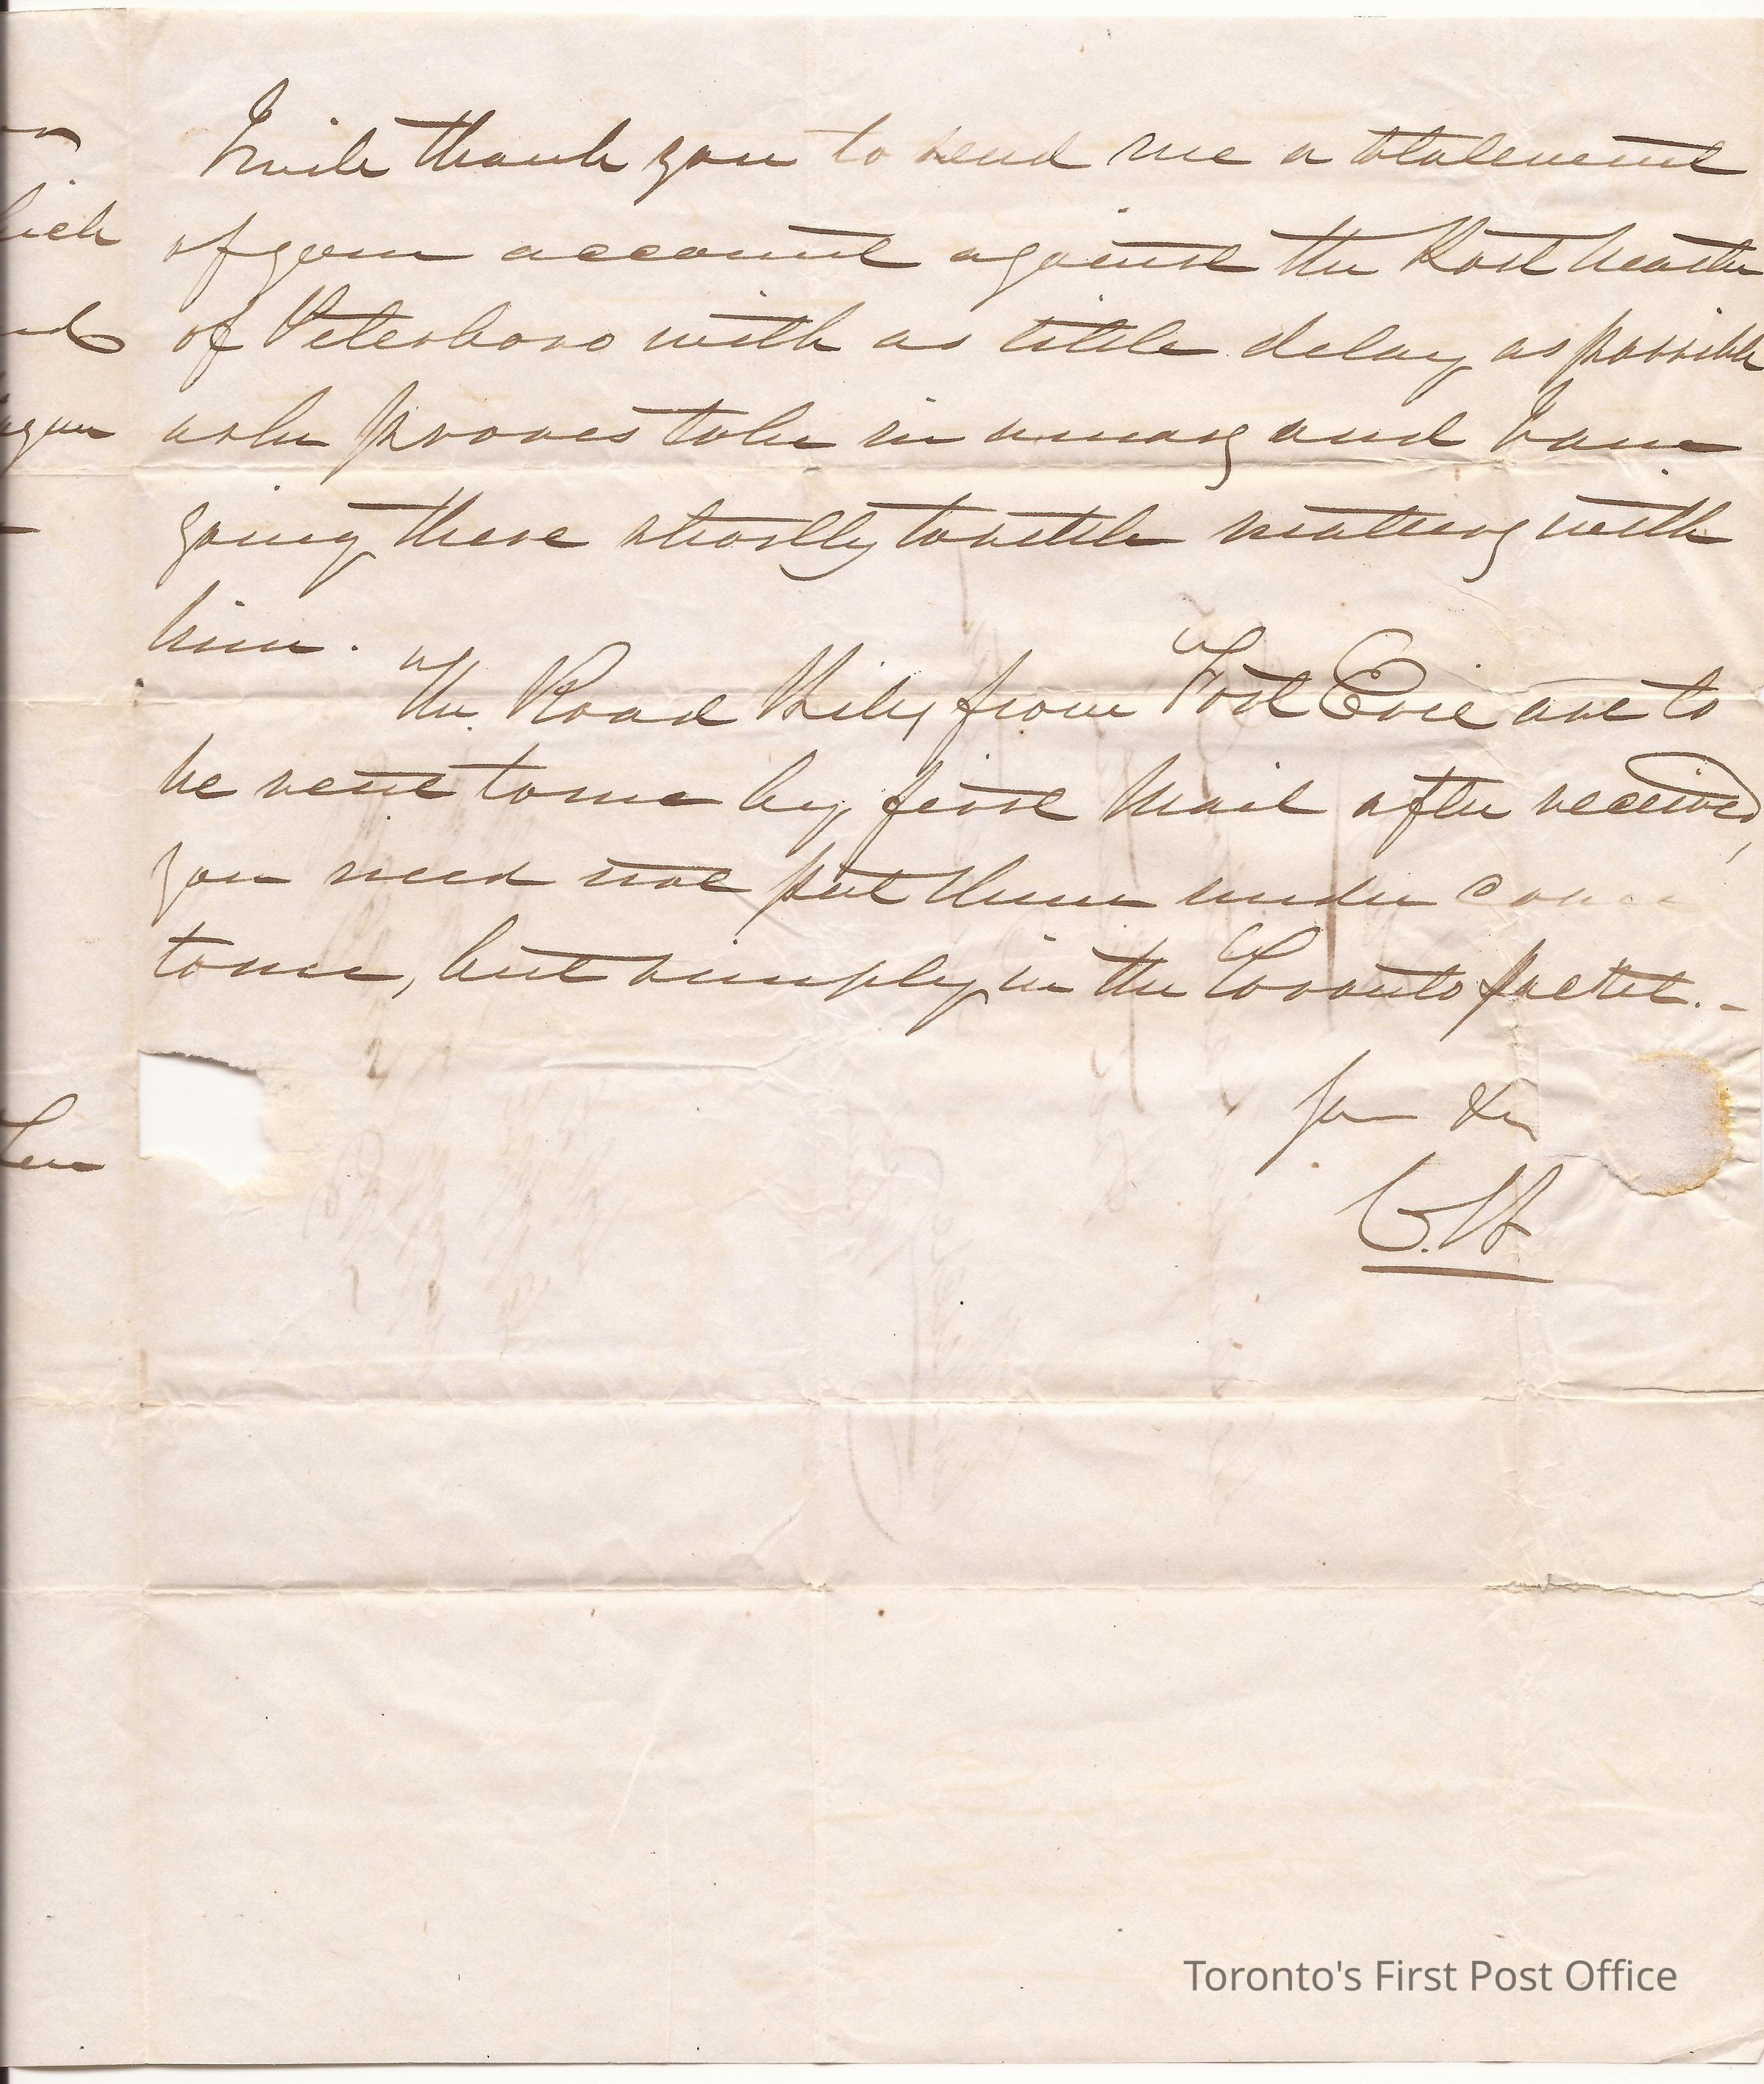 I will thank you to send me a statement
of your account against the Post Master
of Peterboro with as little delay as possible
as he proves to be in arrears and I am
going there shortly to settle matters with
him.
The Road Bills from Fort Erie are to
be sent to me by first Mail after received,
you need not put them under cover
to me, but simply in the Toronto packet. -
C.H
hich
Toronto's First Post Office